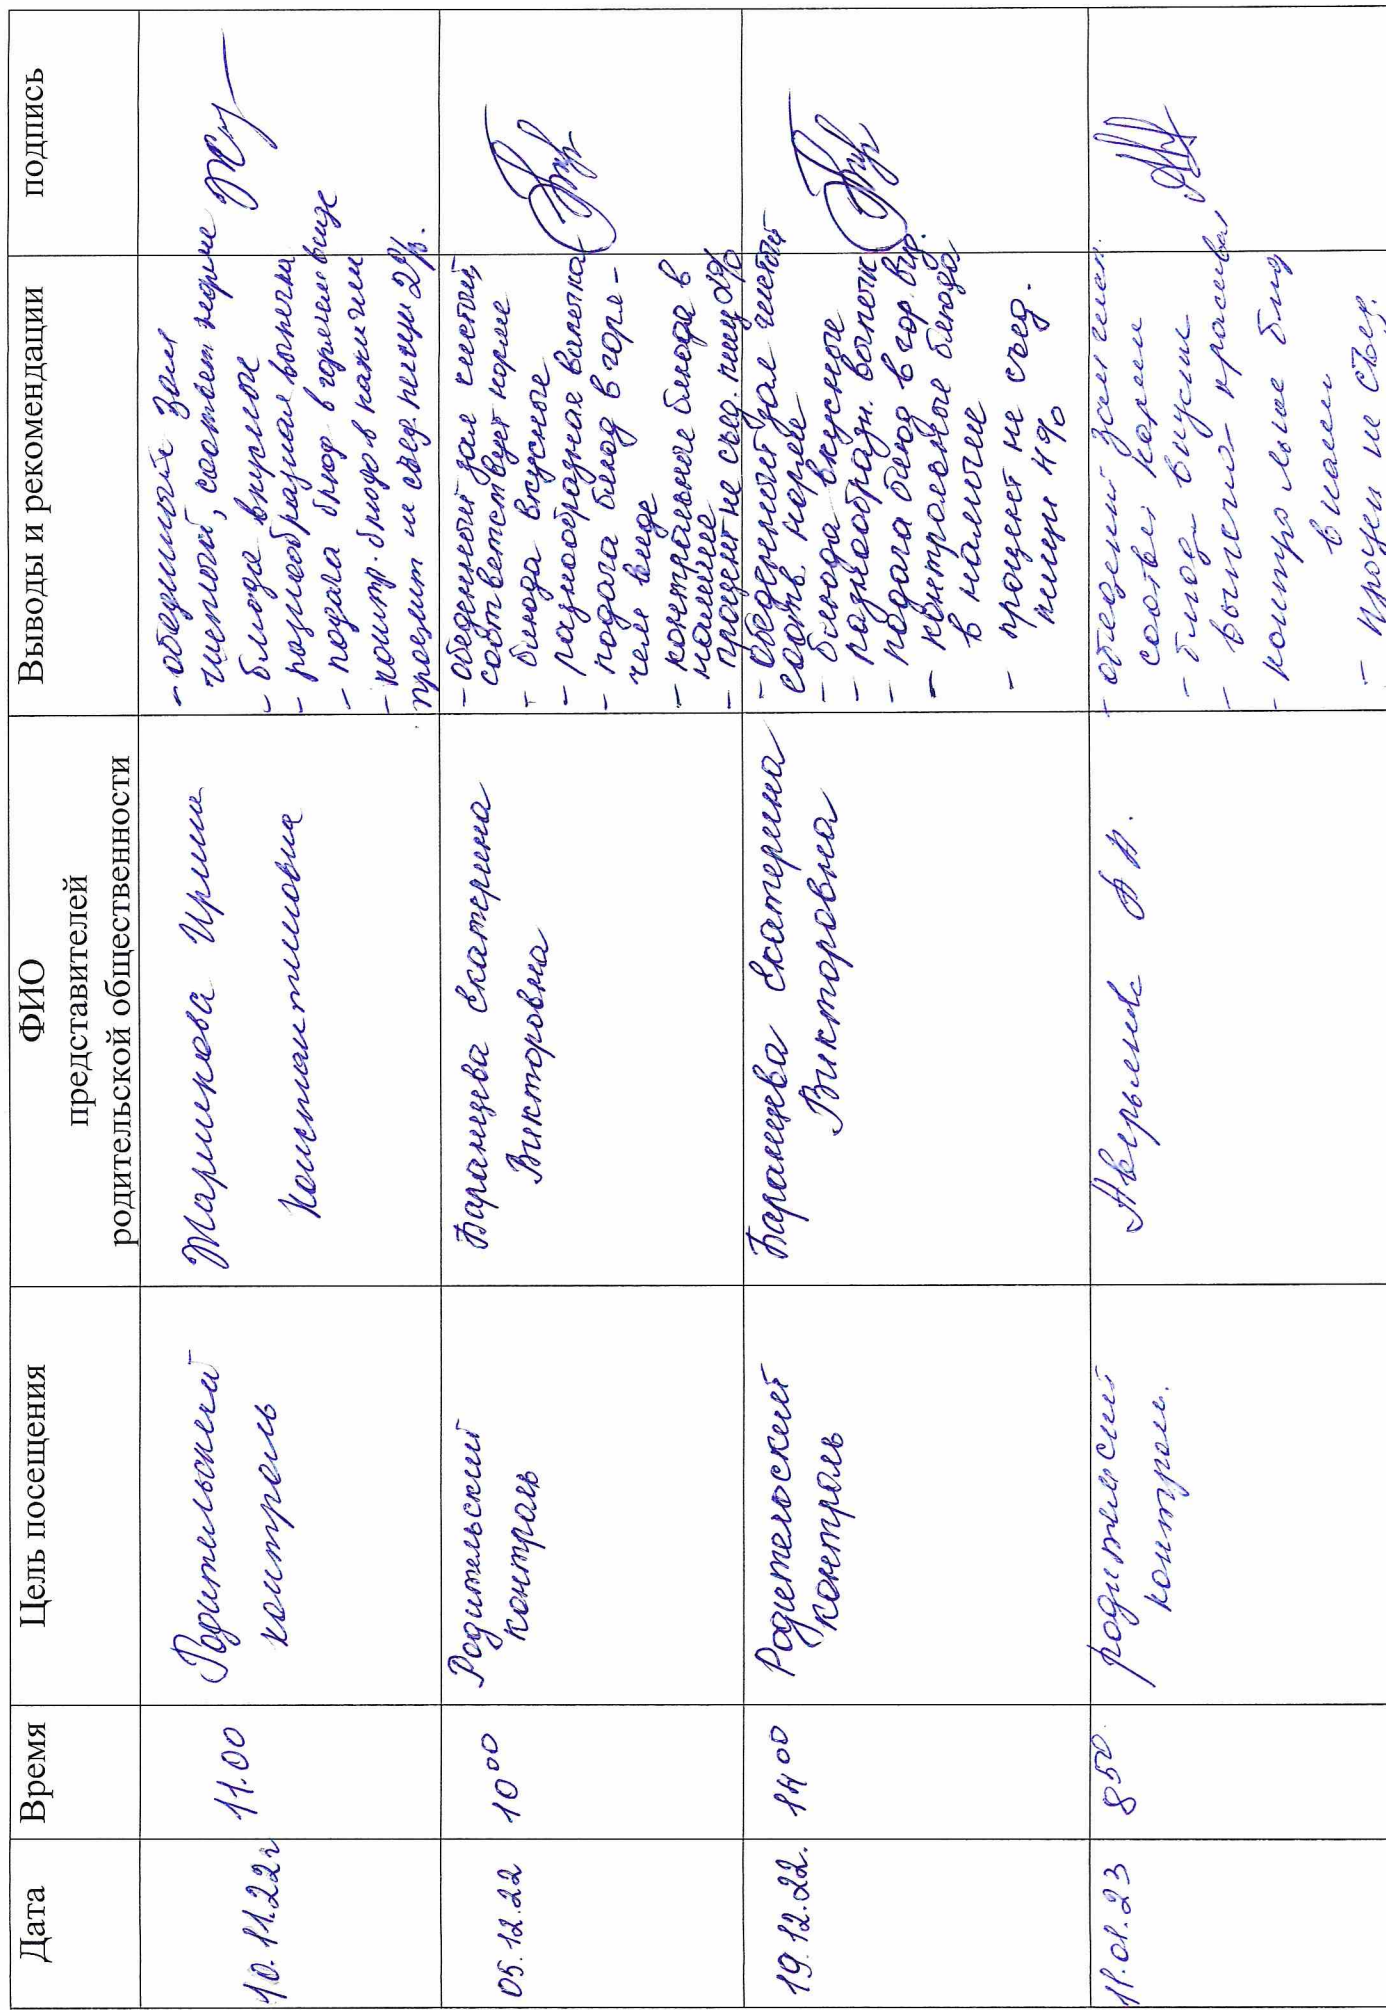 Дата
Время
Цель посещения
ФИО
представителей
родительской общественности
Выводы и рекомендации
подпись
10.11.22г
11.00
Родительский
контроль
Ирина
Константиновна
- обеденный зал
чистый, соответ норме
- блюда вкусные
- разнообразная выпечка
- подача блюд в горячем виде
- контр. блюдо в наличии
процент не съед пищи 2%.
05.12.22
10 00
Родительский
контроль
Баранцева Екатерина
Викторовна
- обеденный зал чистый,
соответствует норме
- блюда вкусные
- разнообразная выпечка
- подача блюд в горя-
чем виде
- контрольное блюдо в
наличие
- процент не съед. пищ 2%
19.12.22.
14 00
Родительский
контроль
Баранцева Екатерина
Викторовна
- Обеденный зал чистый
соотв. норме
- блюда вкусные
- разнообразн. выпечк
- подача блюд в гор. вид.
- контрольные блюда
в наличие
- процент не съед.
пищи 4%
11.01.23
8 50
родительский
контроль
- обеденный зал чист.
соотв. норме
- блюда вкусные
- выпечка красивая
- контрольные блюд
в налич
- процен не съед.